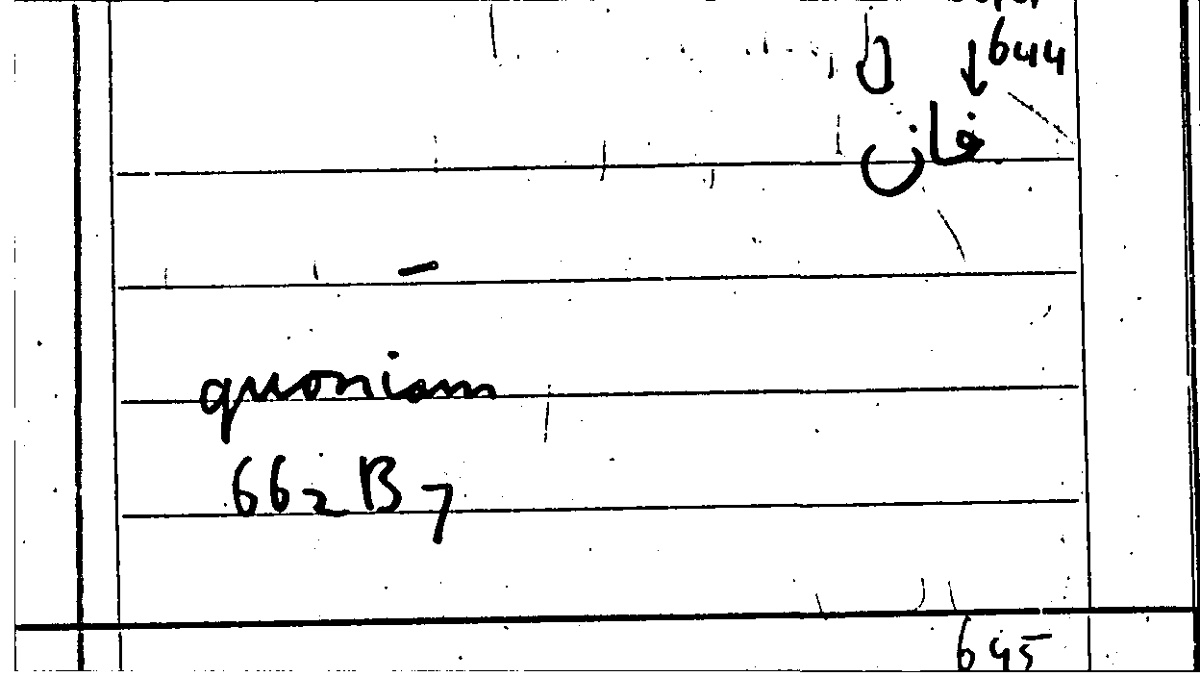 ↓644
فان
quoniam
662B7
645